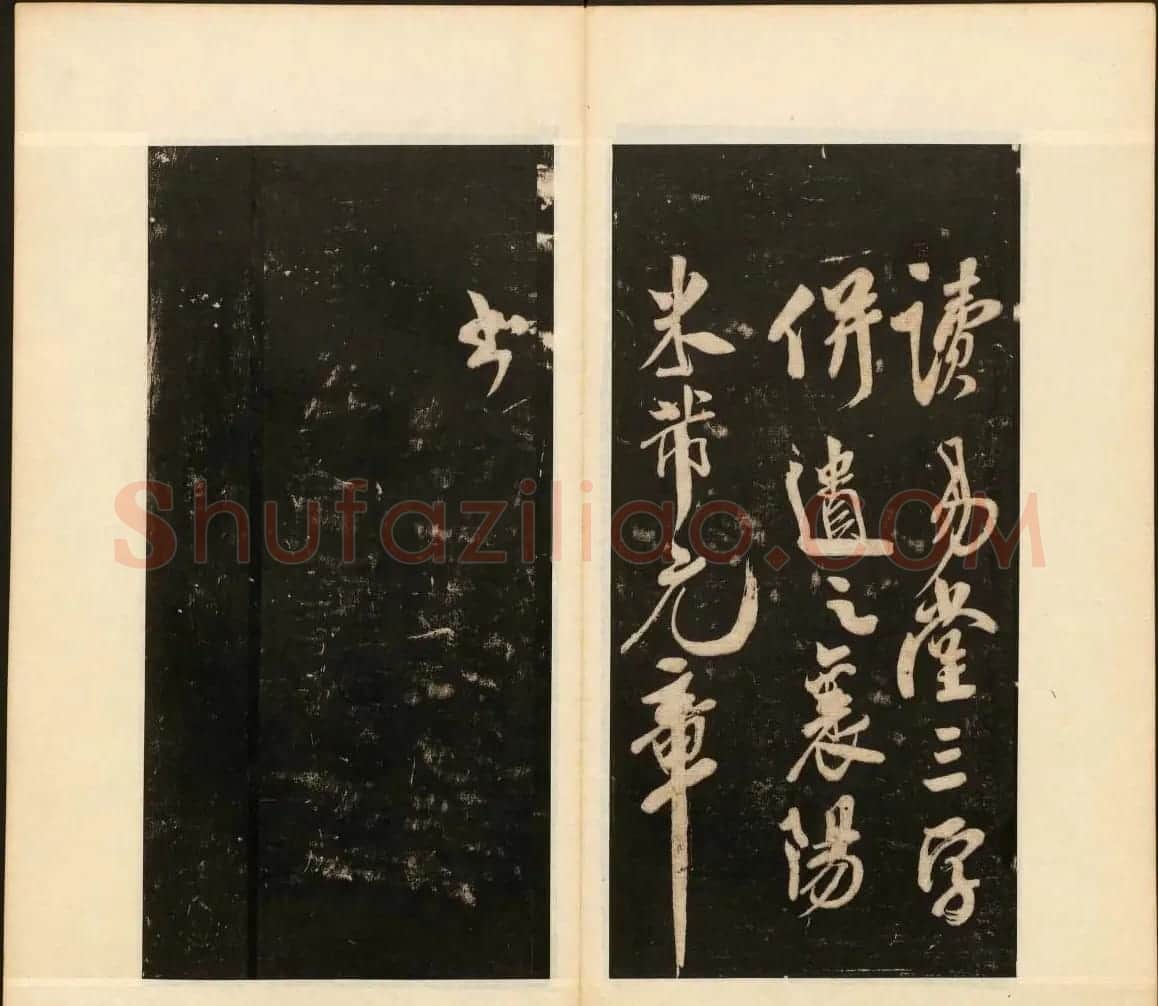 讀易堂三字
併遺之襄陽
米芾元章
書
Shufaziliao.COM